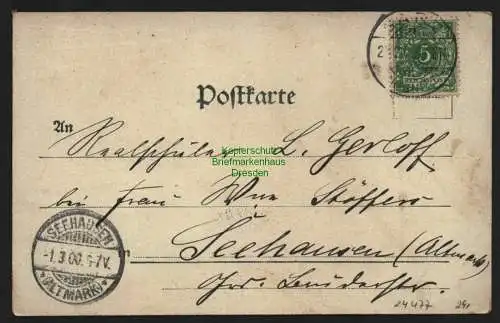 5
Postkarte
Kopierschutz
Briefmarkenhaus
Dresden
An
Realschüler L. Gerloff
bei Frau Wwe Stöffers
Seehausen (Altmark)
SEEHAUSEN
-1.3.00.6-7V.
(ALTMARK)
24477